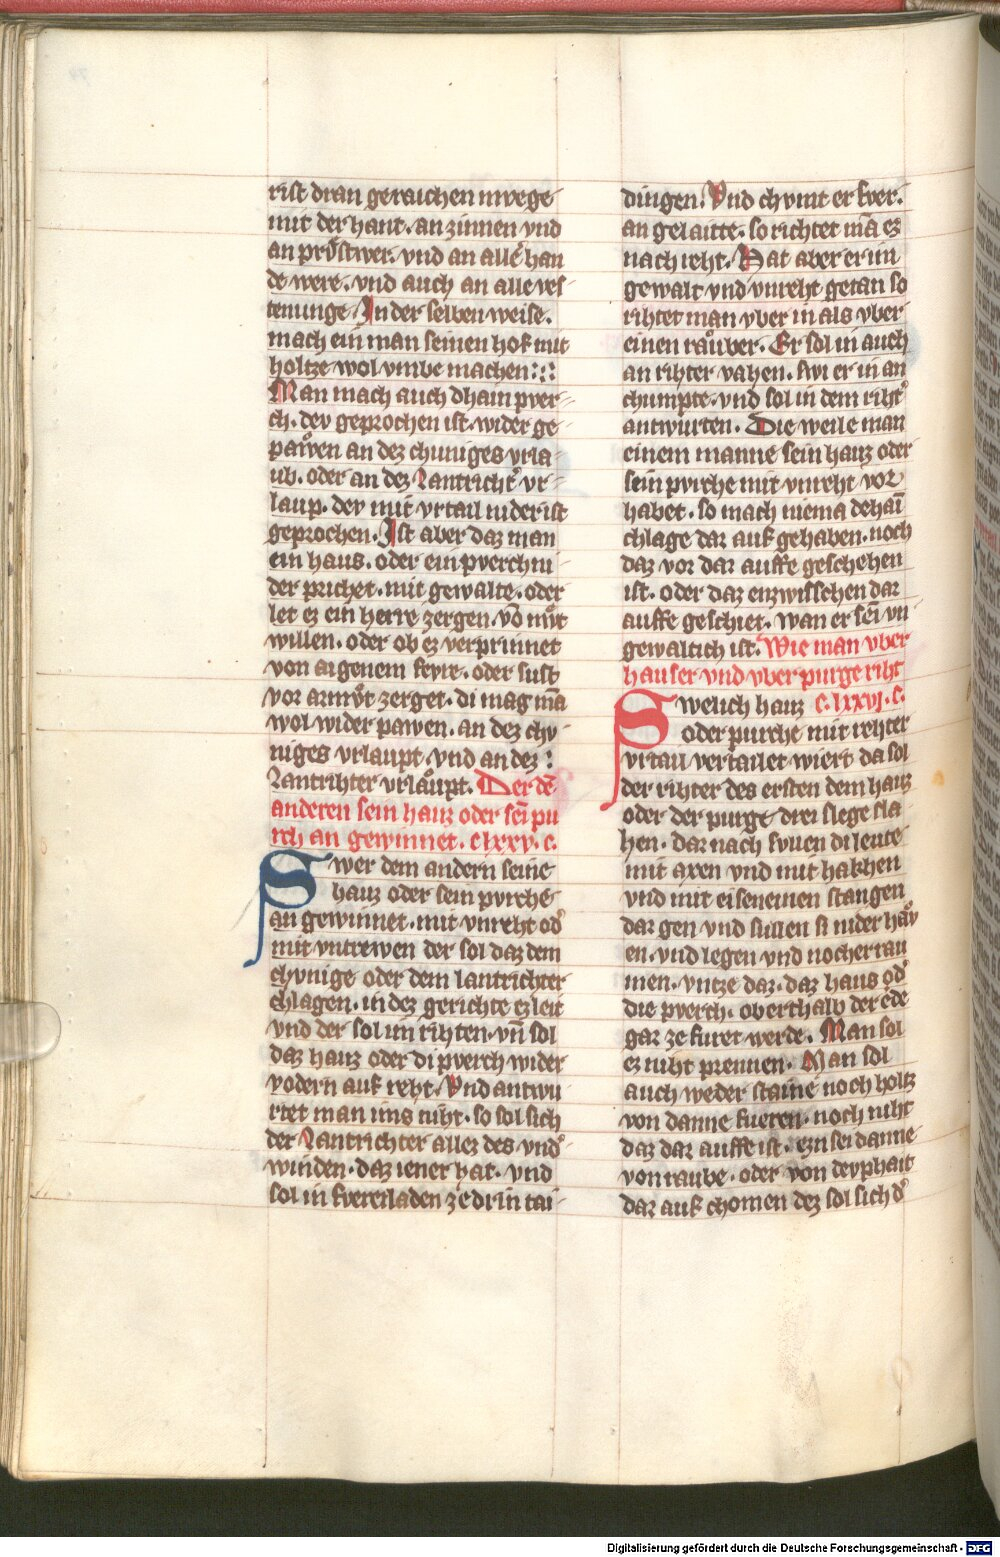 rist dran geraichen mvege
mit der hant. an zinnen vnd
an průstwer. vnd an allē han
de were. vnd auch an alle ves
tenunge In der selben weise.
mach ein man seinen hof mit
holtze wol vmbe machen
Man mach auch dhain pver
ch. dev geprochen ist. wider ge
paẘen an dez chuniges vrla
ub. oder an dez Lantricht̕ vr
laup. dev mit vrtail nider ist
geprochen. Ist aber daz man
ein haus. oder ein pverch ni
der prichet. mit gewalte. oder
let ez ein herre zergen. vō můt
willen. oder ob ez verprinnet
von aigenem fevre. oder sust
vor armůt zerget. di mag mā
wol wider pawen. an dez chv
niges vrlaupt. vnd an dez
Lantrihter vrlaůpt. Der dē
anderen sein hauz oder sei pu
rch an gewinnet. clxxv. c.
Swer dem andern seine
hauz oder sein pvrche
an gewinnet. mit vnreht od̕
mit vntrewen der sol daz dem
chvnige oder dem lantrichter
chlagen. in dez gerichte ez leit
vnd der sol im rihten. vn̄ sol
daz hauz oder di pverch wider
vodern auf reht. Vnd antwu
rtet man ims niht. so sol sich
der Lantrichter allez des vnd̕
winden. daz iener hat. vnd
sol in fverenladen ze drin tai
dingen. Vnd chvmt er fver.
an gelaitte. so richtet mā ez
nach reht. Hat aber er im
gewalt vnd vnreht getan so
rihtet man vber in als vber
einen raůber. Er sol in auch
an rihter vahen. swi er in an
chumpte. vnd sol in dem riht̕
antwurten. Die weile man
einem manne sein hauz oder
sein pvrche mit vnreht vor
habet. so mach niema dehai
chlage dar auf gehaben. noch
daz vor dar auffe geschehen
ist. oder daz enzwisschen dar
auffe geschiet. wan er sei vn
gewaltich ist. Wie man vber
hauser vnd vber purge riht
Swelich hauz c. lxxvi. c.
oder purche mit rehter
vrtail vertailet wiert da sol
der rihter des ersten dem hauz
oder der purge drei slege sla
hen. dar nach svlen di leute
mit axen vnd mit hakhen
vnd mit eiseneinen stangen
dar gen vnd sullen si nider haů
en. vnd legen vnd nocher rau
men. vntze daz. daz haus od̕
die pverch. oberthalb der ērde
gar ze furet werde. Man sol
ez niht prennen. Man sol
auch weder staine noch holtz
von danne fueren. noch niht
daz dar auffe ist. ezn sei danne
von raube. oder von devphait
dar auf chomen dez sol sich d̕
Digitalisierung gefördert durch die Deutsche Forschungsgemeinschaft - DFG